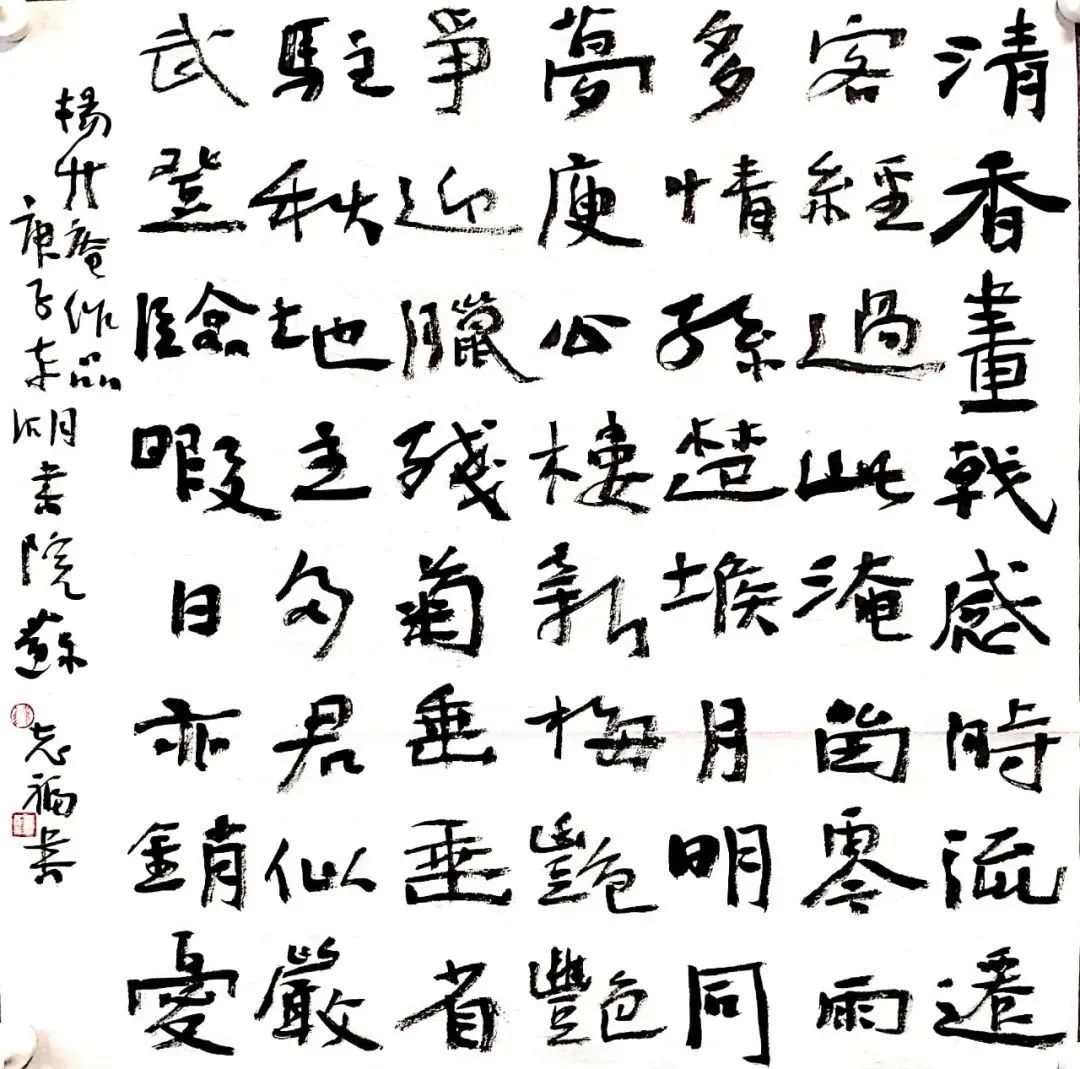 清香畫戟感時流遷
客經過此淹留零雨
多情孫楚堠月明同
夢庾公樓新梅艷艷
爭迎臘殘菊垂垂省
駐秋地主多君似嚴
武登臨暇日亦銷憂
楊升庵作品
庚子东湖書院蘇志福書